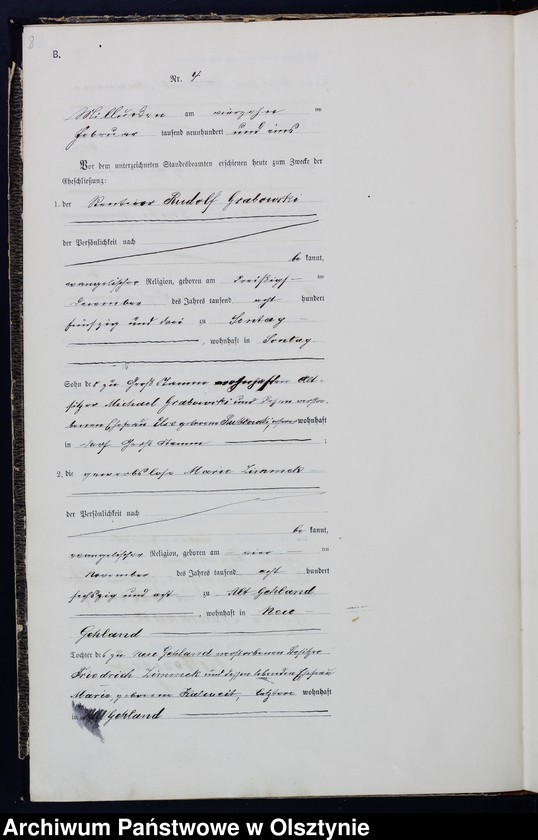 8
B.
Nr. 4
Millucken am vierzehn ten
Februar tausend neunhundert und eins
Vor dem unterzeichneten Standesbeamten erschienen heute zum Zwecke der
Eheschließung:
1. der Rentier Rudolf Grabowski
der Persönlichkeit nach
be kannt,
evangelischer Religion, geboren am dreißigs- ten
Dezember des Jahres tausend acht hundert
fünfzig und drei zu Sontag
, wohnhaft in Sontag
Sohn des zu Groß Stamm wohnhaften Alt-
sitzer Michael Grabowski und dessen verstor-
benen Ehefrau geborenen wohnhaft
in Groß Stamm ;
2. die gewerbslose Marie Zimmek
der Persönlichkeit nach
be kannt,
evangelischer Religion, geboren am vier ten
November des Jahres tausend acht hundert
sechszig und acht zu Alt Gehland
, wohnhaft in Neu
Gehland
Tochter des zu Neu Gehland verstorbenen Besitzer
Friedrich Zimmek und dessen lebenden Ehefrau
Marie, geborenen letztere wohnhaft
in Alt Gehland
Archiwum Państwowe w Olsztynie